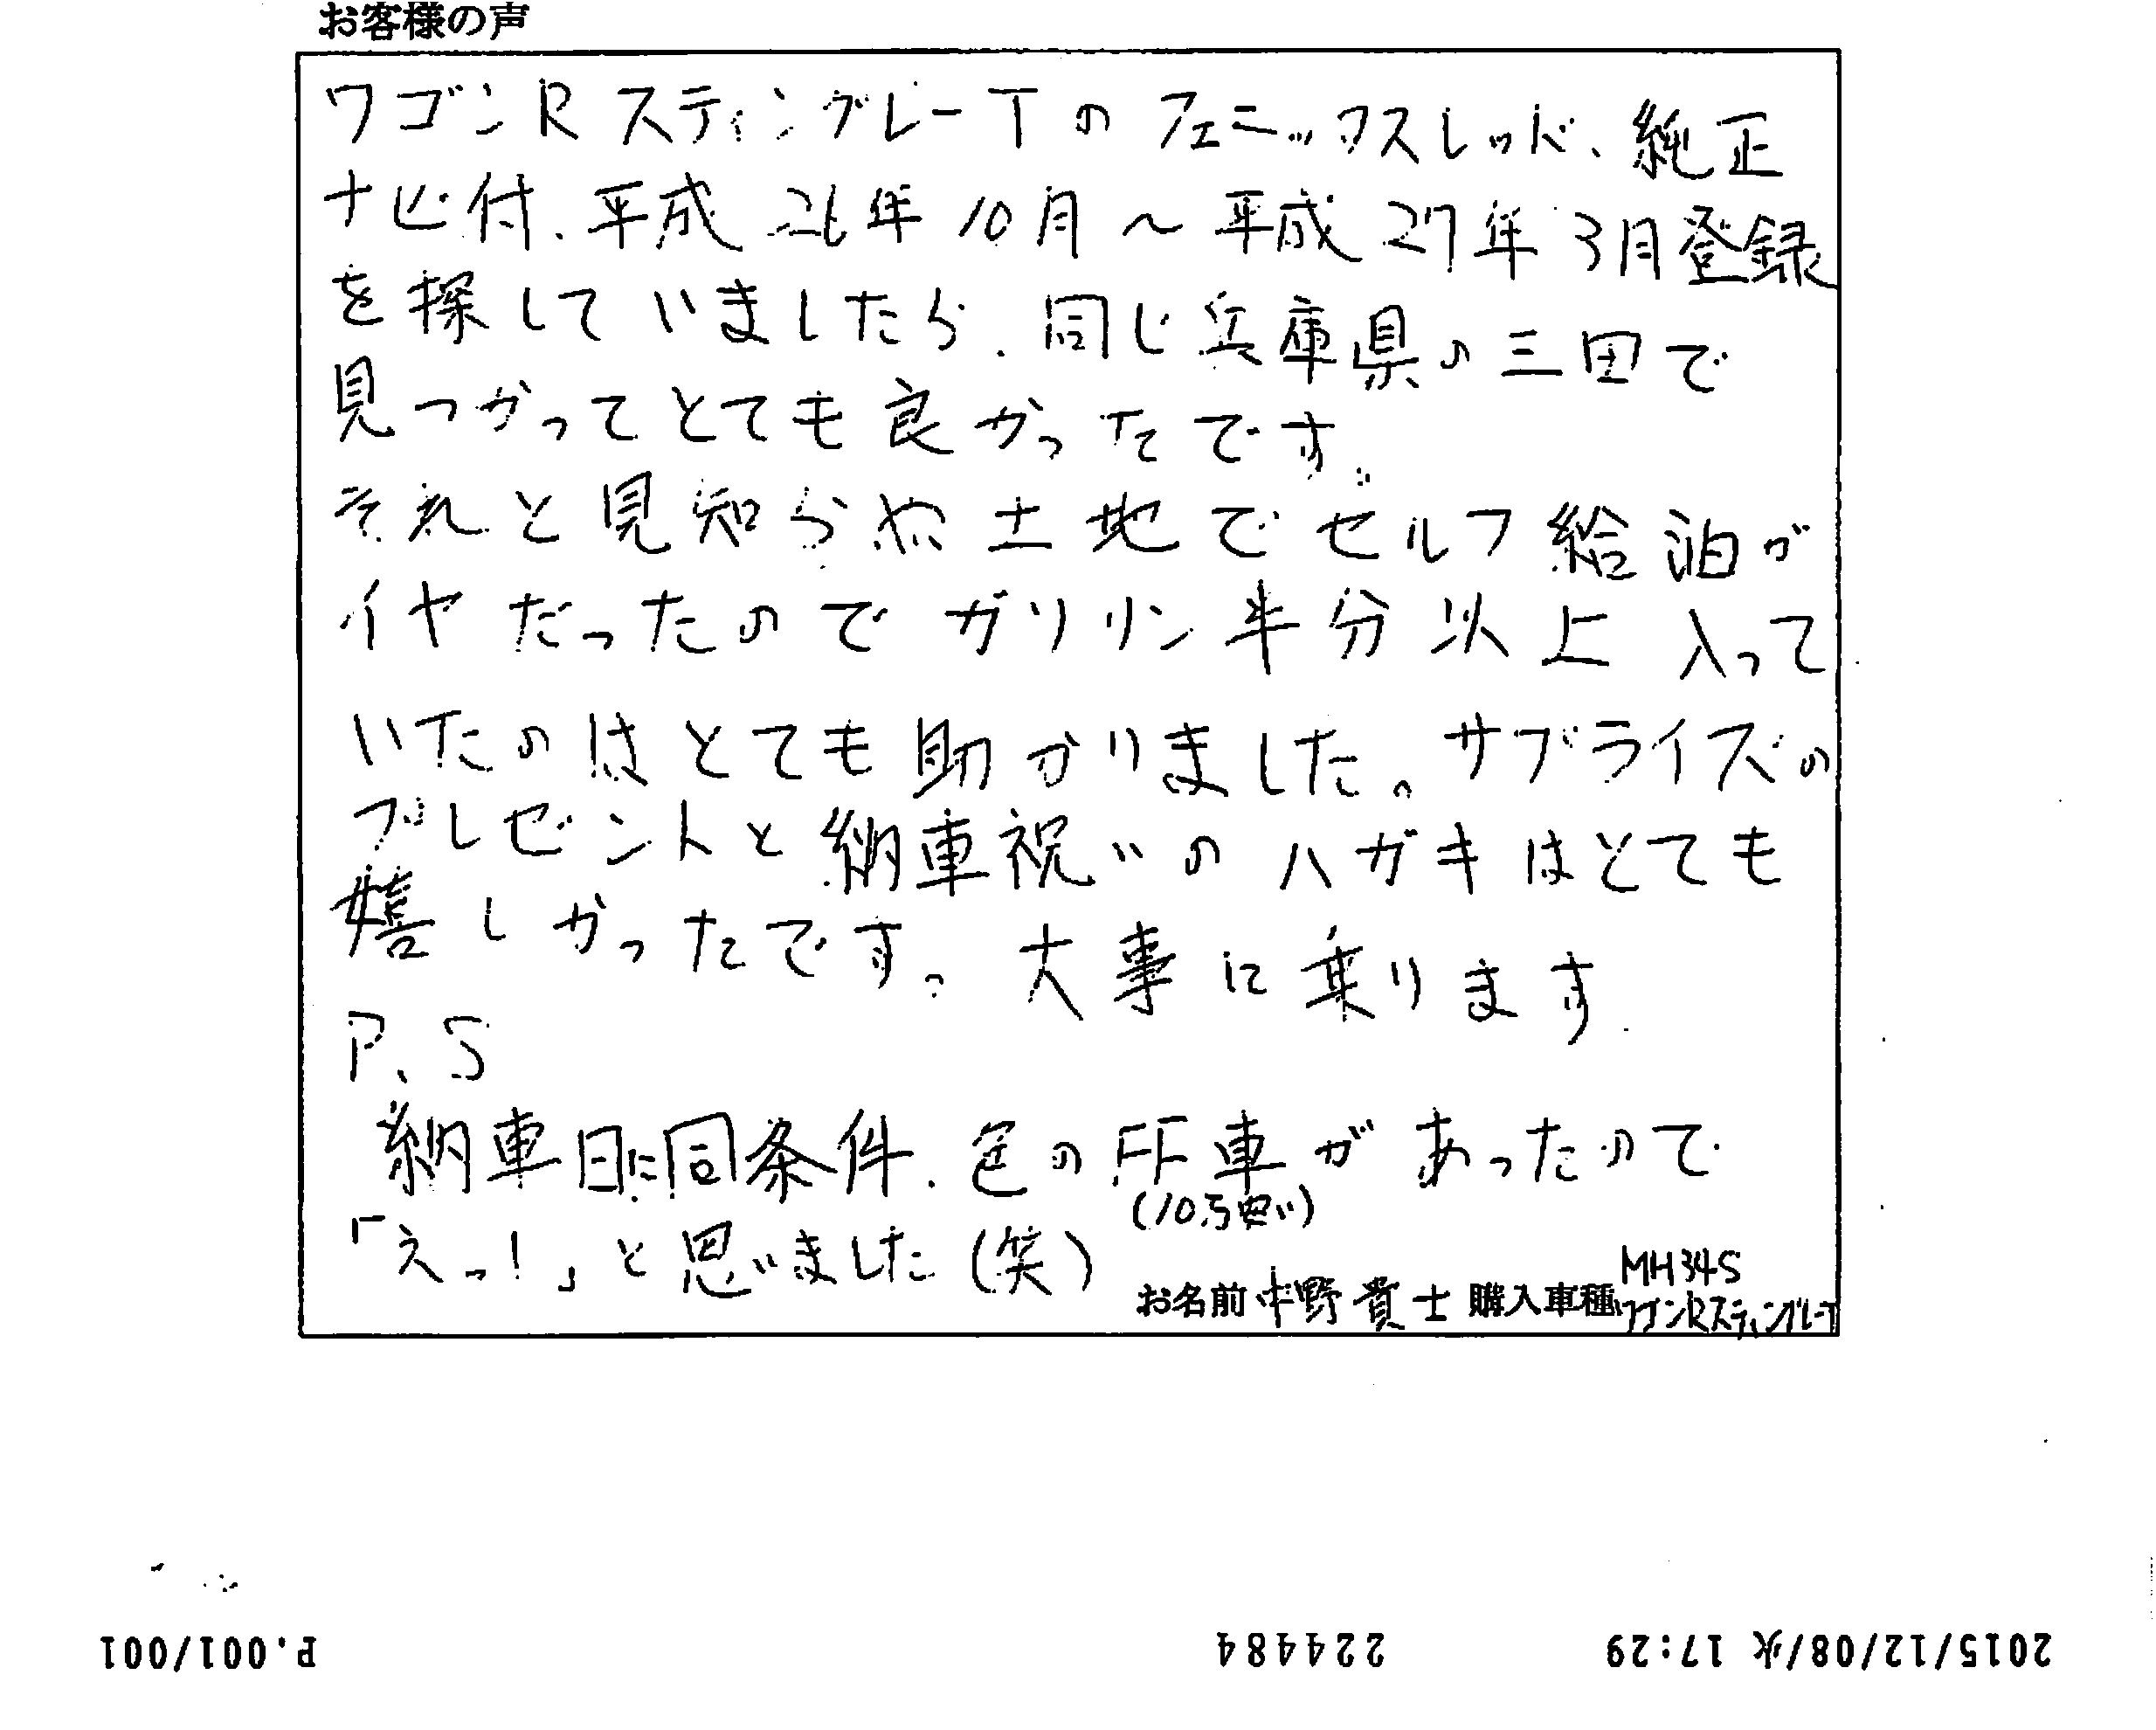 お客様の声
ワゴンRスティングレーTのフェニックスレッド、純正
ナビ付、平成26年10月〜平成27年3月登録
を探していましたら、同じ兵庫県の三田で
見つかってとても良かったです。
それと見知らぬ土地でセルフ給油が
イヤだったのでガソリン半分以上入って
いたのはとても助かりました。サプライズの
プレゼントと納車祝いのハガキはとても
嬉しかったです。大事に乗ります
P.S
納車日に同条件、色のFF車があったので
(10万安い)
「えっ!」と思いました(笑)
お名前 中野貴士 購入車種 MH34S
ワゴンRスティングレーT
2015/12/08/火 17:29 224484 P.001/001